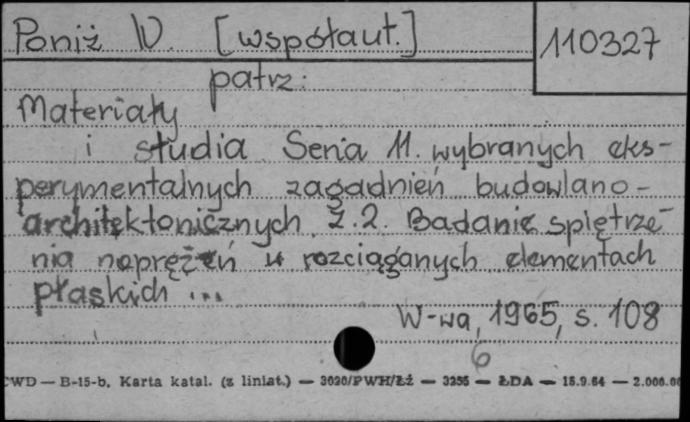 Poniż W. [współaut.]
110327
patrz:
Materiały
i studia Seria 11. wybranych eks-
perymentalnych zagadnień budowlano-
architektonicznych Z.2. Badanie spiętrze-
nia naprężeń w rozciąganych elementach
płaskich ...
W-wa, 1965, s. 108
6
CWD — B-15-b, Karta katal. (z liniat.) — 3020/PWH/Łź — 3255 — ŁDA — 15.9.64 — 2.000.00